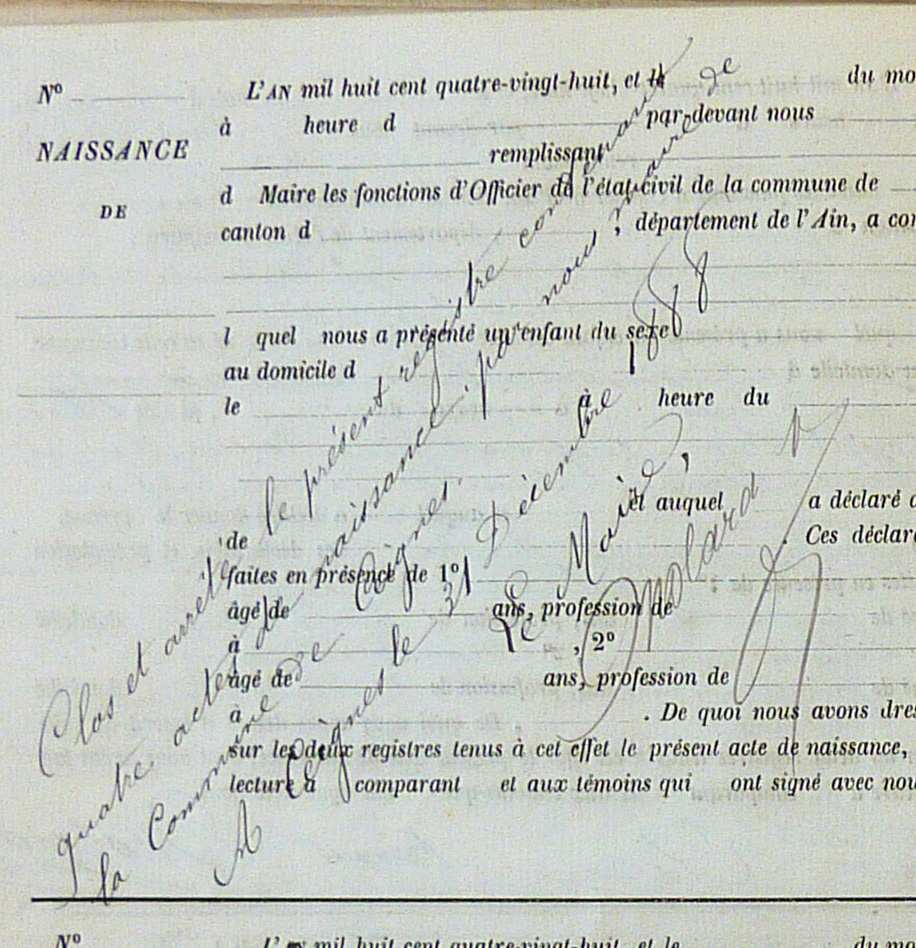 N° L'AN mil huit cent quatre-vingt-huit, et le du mo
à heure d par-devant nous
NAISSANCE remplissant
d Maire les fonctions d'Officier de l'état-civil de la commune de
DE
canton d , département de l'Ain, a com
l quel nous a présenté un enfant du sexe
au domicile d
le à heure du
et auquel a déclaré
de . Ces déclar
faites en présence de 1°
âgé de ans, profession de
à , 2°
âgé de ans, profession de
à . De quoi nous avons dres
sur les deux registres tenus à cet effet le présent acte de naissance,
lecture à comparant et aux témoins qui ont signé avec nou
Clos et arrêté le présent registre contenant
quatre actes de naissance, par nous maire de
la Commune de Ceignes.
A Ceignes le 31 Décembre 1888
Le Maire,
Molard
N° L'AN mil huit cent quatre-vingt-huit, et le du mo